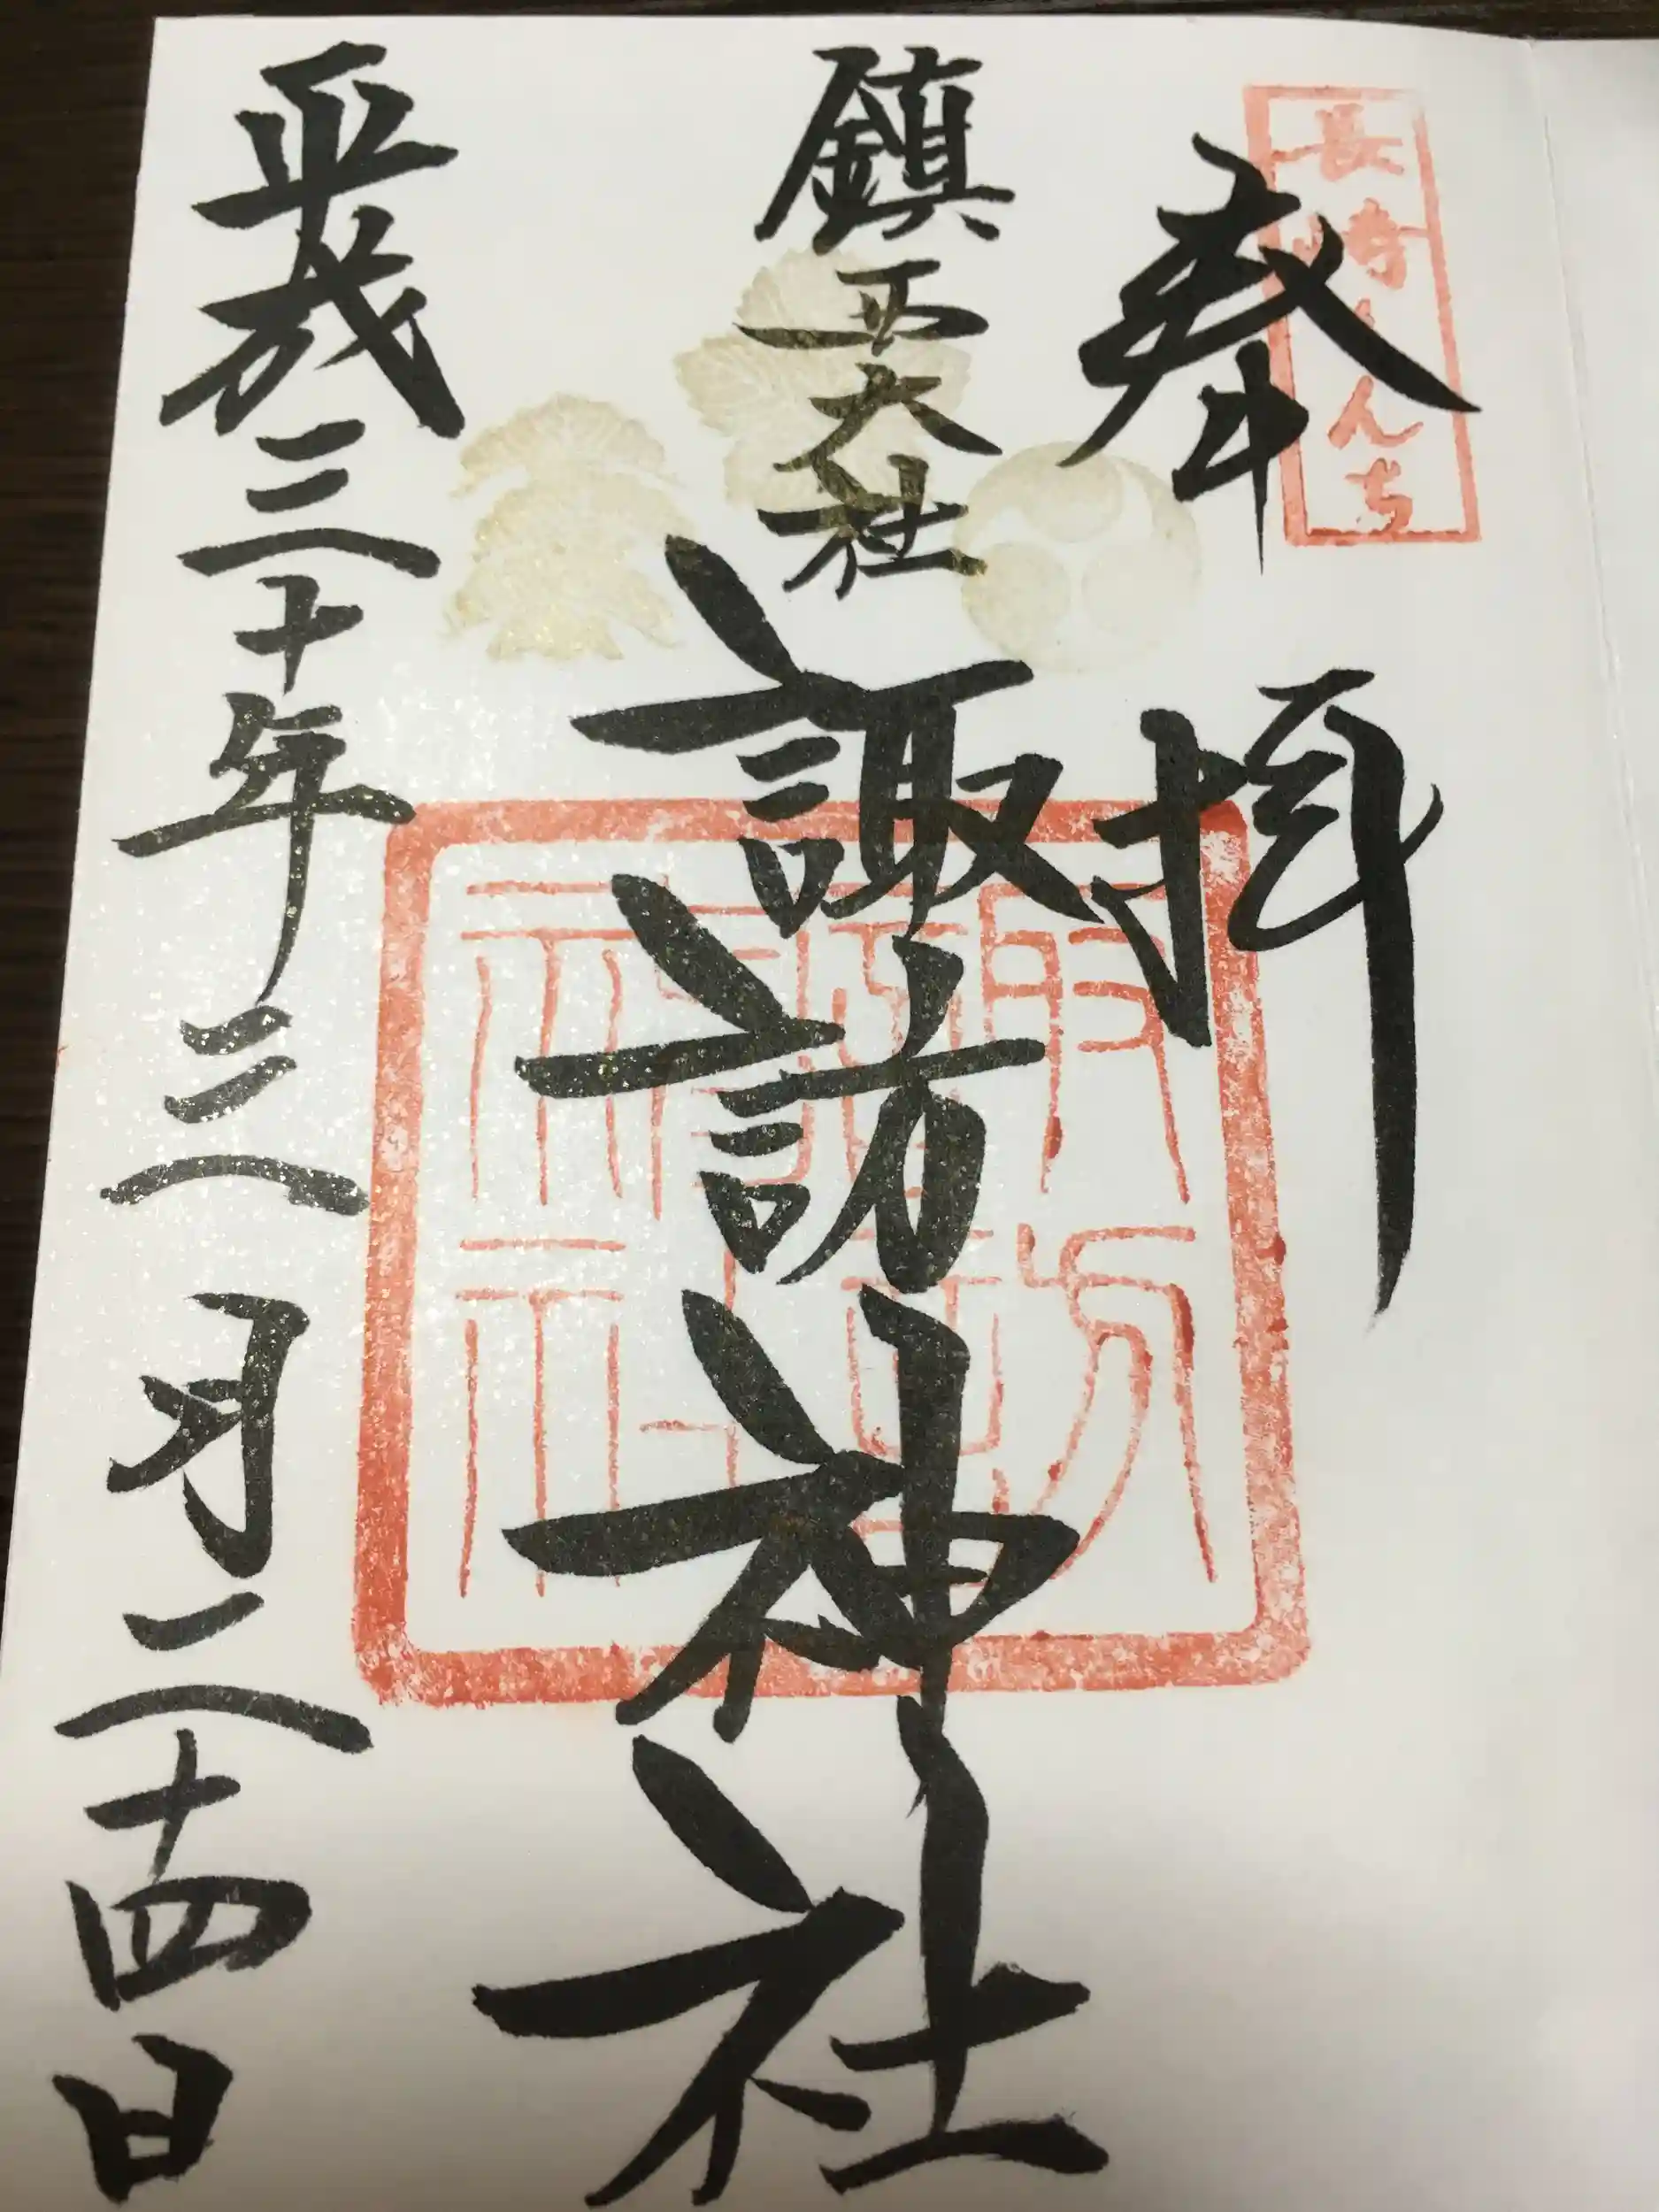 長崎くんち
奉拝
鎮西大社
諏訪神社
諏訪神社
平成三十年三月二十四日